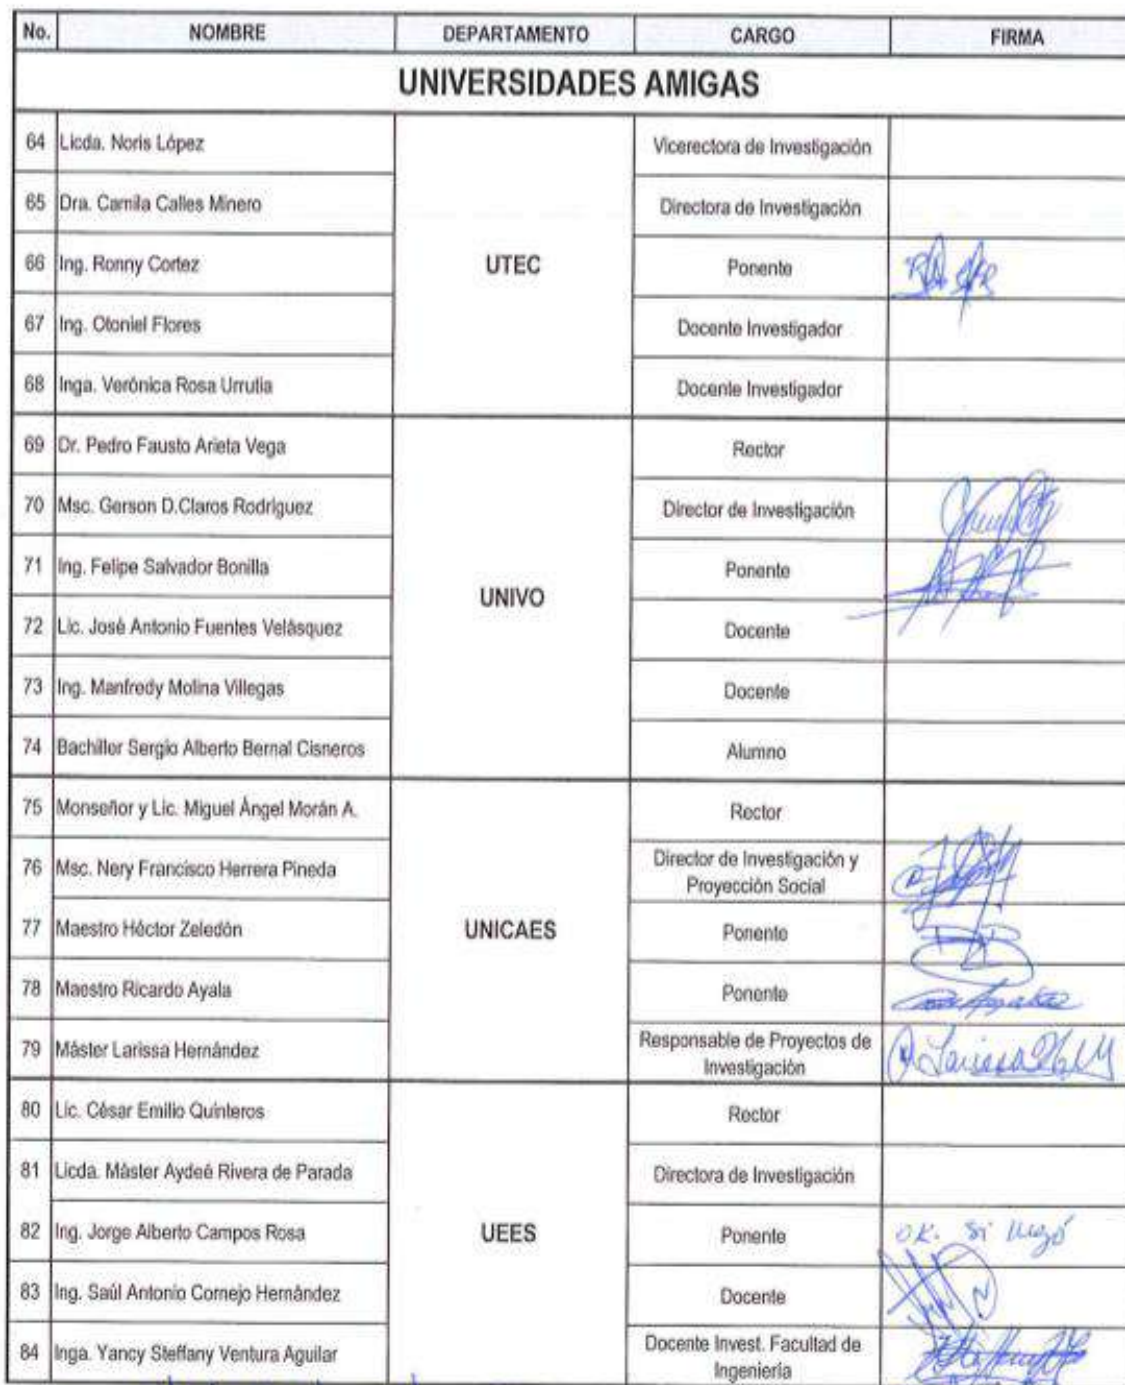 No. NOMBRE DEPARTAMENTO CARGO FIRMA
UNIVERSIDADES AMIGAS
64 Licda. Noris López Vicerectora de Investigación
65 Dra. Camila Calles Minero Directora de Investigación
66 Ing. Ronny Cortez UTEC Ponente
67 Ing. Otoniel Flores Docente Investigador
68 Inga. Verónica Rosa Urrutia Docente Investigador
69 Dr. Pedro Fausto Arieta Vega Rector
70 Msc. Gerson D.Claros Rodríguez Director de Investigación
71 Ing. Felipe Salvador Bonilla Ponente
UNIVO
72 Lic. José Antonio Fuentes Velásquez Docente
73 Ing. Manfredy Molina Villegas Docente
74 Bachiller Sergio Alberto Bernal Cisneros Alumno
75 Monseñor y Lic. Miguel Ángel Morán A. Rector
76 Msc. Nery Francisco Herrera Pineda Director de Investigación y
Proyección Social
77 Maestro Héctor Zeledón UNICAES Ponente
78 Maestro Ricardo Ayala Ponente
79 Máster Larissa Hernández Responsable de Proyectos de
Investigación
80 Lic. César Emilio Quinteros Rector
81 Licda. Máster Aydeé Rivera de Parada Directora de Investigación
82 Ing. Jorge Alberto Campos Rosa UEES Ponente OK. Si llegó
83 Ing. Saúl Antonio Cornejo Hernández Docente
84 Inga. Yancy Steffany Ventura Aguilar Docente Invest. Facultad de
Ingeniería